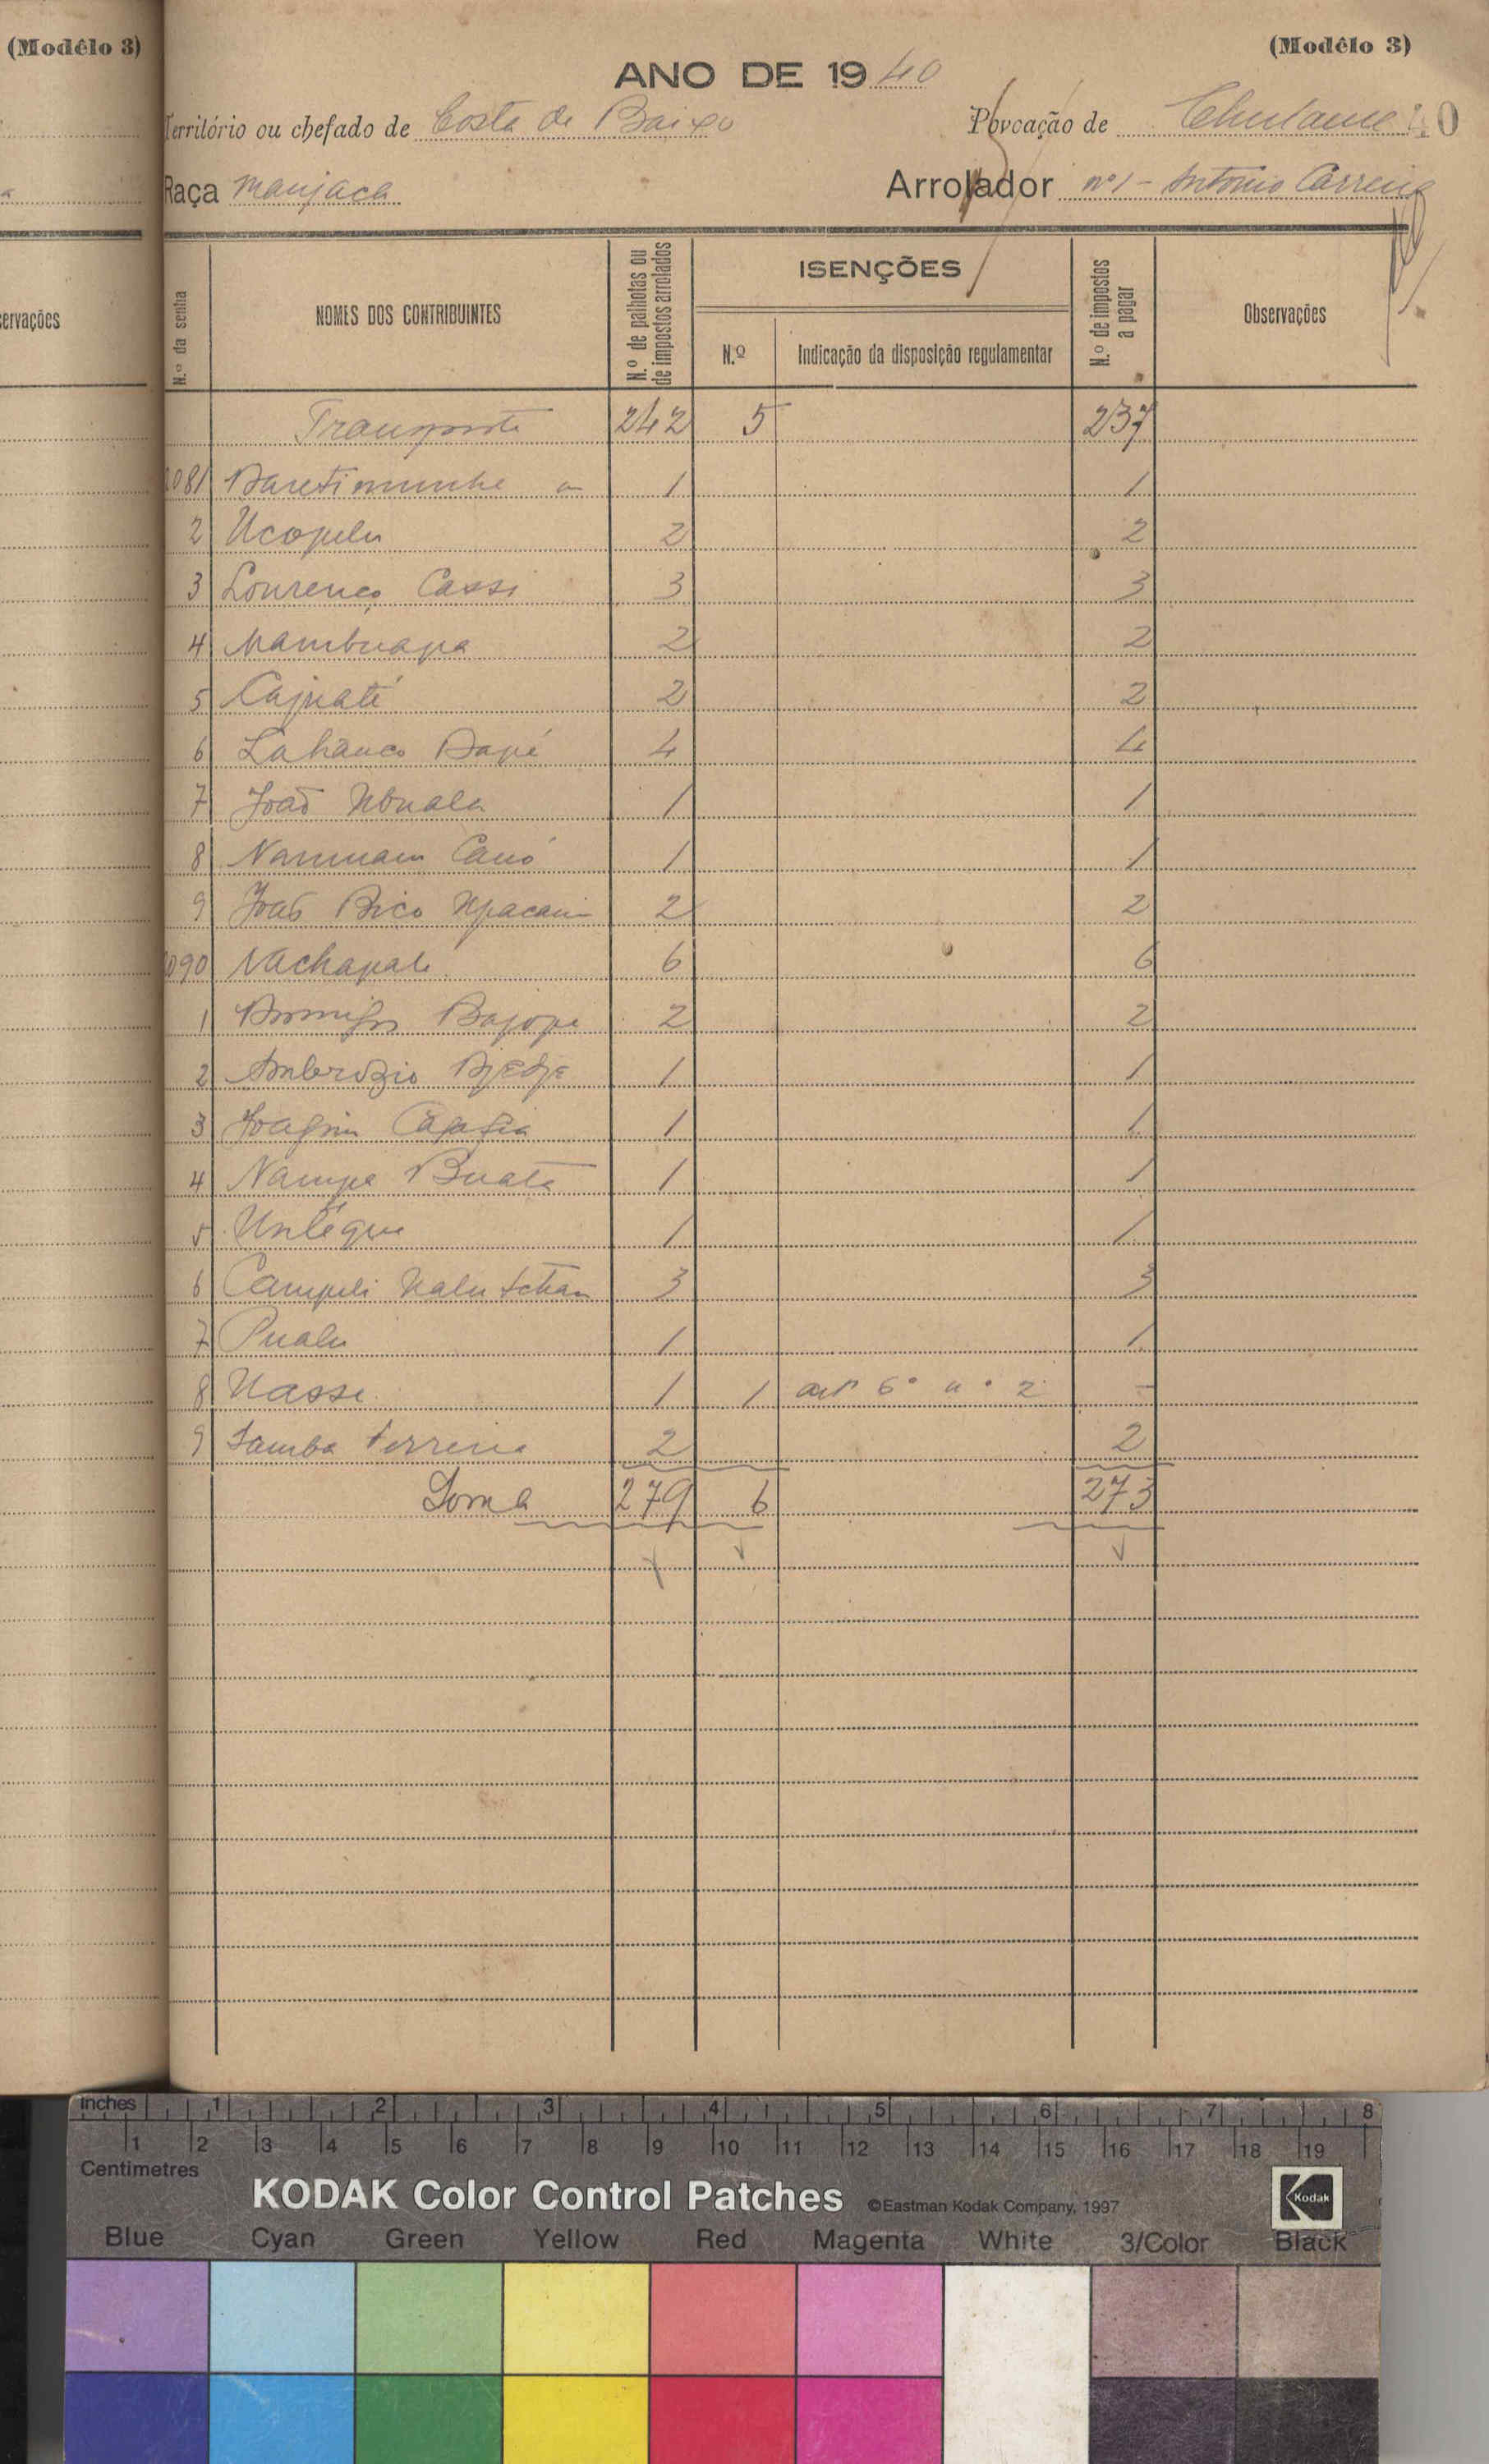 (Modêlo 3)
(Modêlo 3)
ANO DE 1940
Território ou chefado de Costa de Baixo
Povoação de
40
Raça Manjaca
Arrolador nº 1 - António Carreira
ervações
N.º da senha
NOMES DOS CONTRIBUINTES
N.º de palhotas ou de impostos arrolados
ISENÇÕES
N.º
Indicação da disposição regulamentar
N.º de impostos a pagar
Observações
Transporte 242 5 237
081 1 1
2 Ucopelu 2 2
3 Lourenço Cassi 3 3
4 Mambuapa 2 2
5 Cajuaté 2 2
6 4 4
7 João 1 1
8 1 1
9 João Bico 2 2
090 Nachapale 6 6
1 Domingos 2 2
2 Ambrozio 1 1
3 Joaquim 1 1
4 Nampa Buata 1 1
5 Unléque 1 1
6 Campeli 3 3
7 Pualu 1 1
8 Uasse 1 1 artº 6º nº 2 -
9 Samba Ferreira 2 2
Soma 279 6 273
inches 1 2 3 4 5 6 7 8
1 2 3 4 5 6 7 8 9 10 11 12 13 14 15 16 17 18 19
Centimetres
KODAK Color Control Patches ©Eastman Kodak Company, 1997 Kodak
Blue Cyan Green Yellow Red Magenta White 3/Color Black